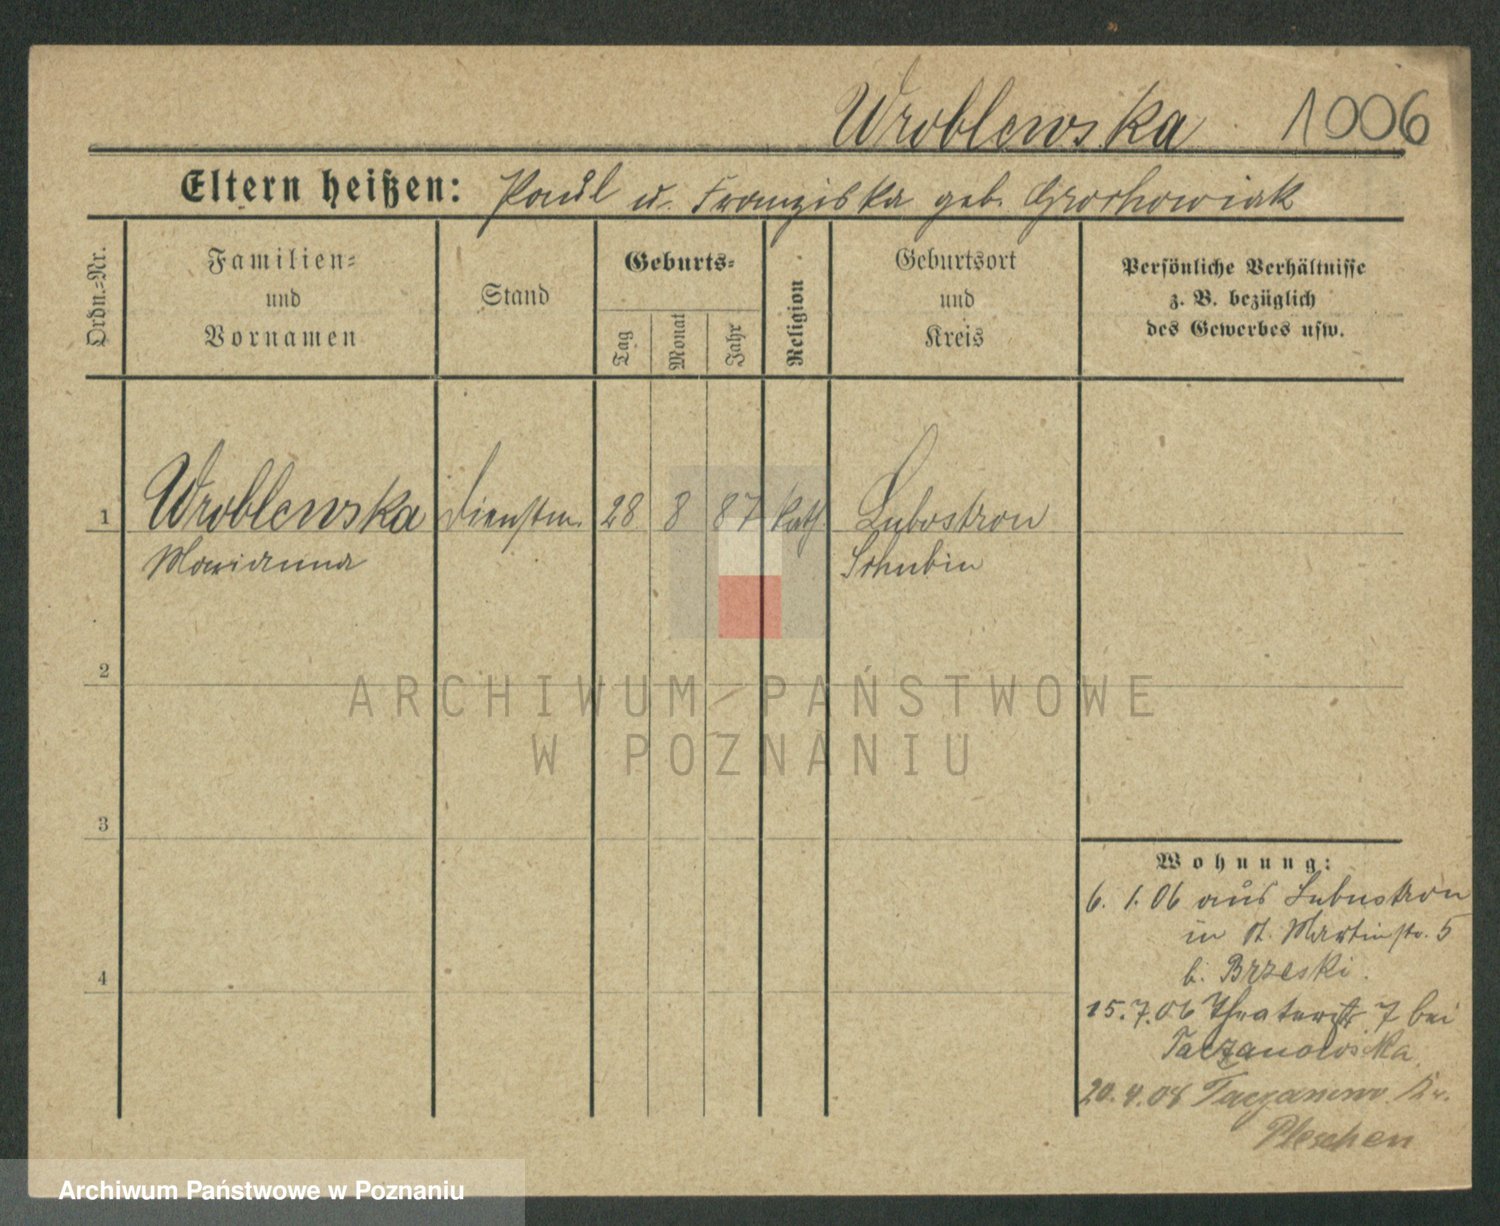 Wroblewska 1006
Eltern heißen: Paul u. Franziska geb. Grochowiak
Ordn.=Nr.
Familien=
und
Vornamen
Stand
Geburts=
Tag
Monat
Jahr
Religion
Geburtsort
und
Kreis
Persönliche Verhältnisse
z. B. bezüglich
des Gewerbes usw.
1 Wroblewska Dienstm. 28 8 87 kath Lubostron
Marianna Schubin
2
ARCHIWUM PAŃSTWOWE
W POZNANIU
3
Wohnung:
6. 1. 06 aus Lubostron
in St. Martinstr. 5
b. Brzeski.
4
15.7.06 Theaterstr. 7 bei
Taczanowska
20.4.08 Taczanowo Kr.
Pleschen
Archiwum Państwowe w Poznaniu